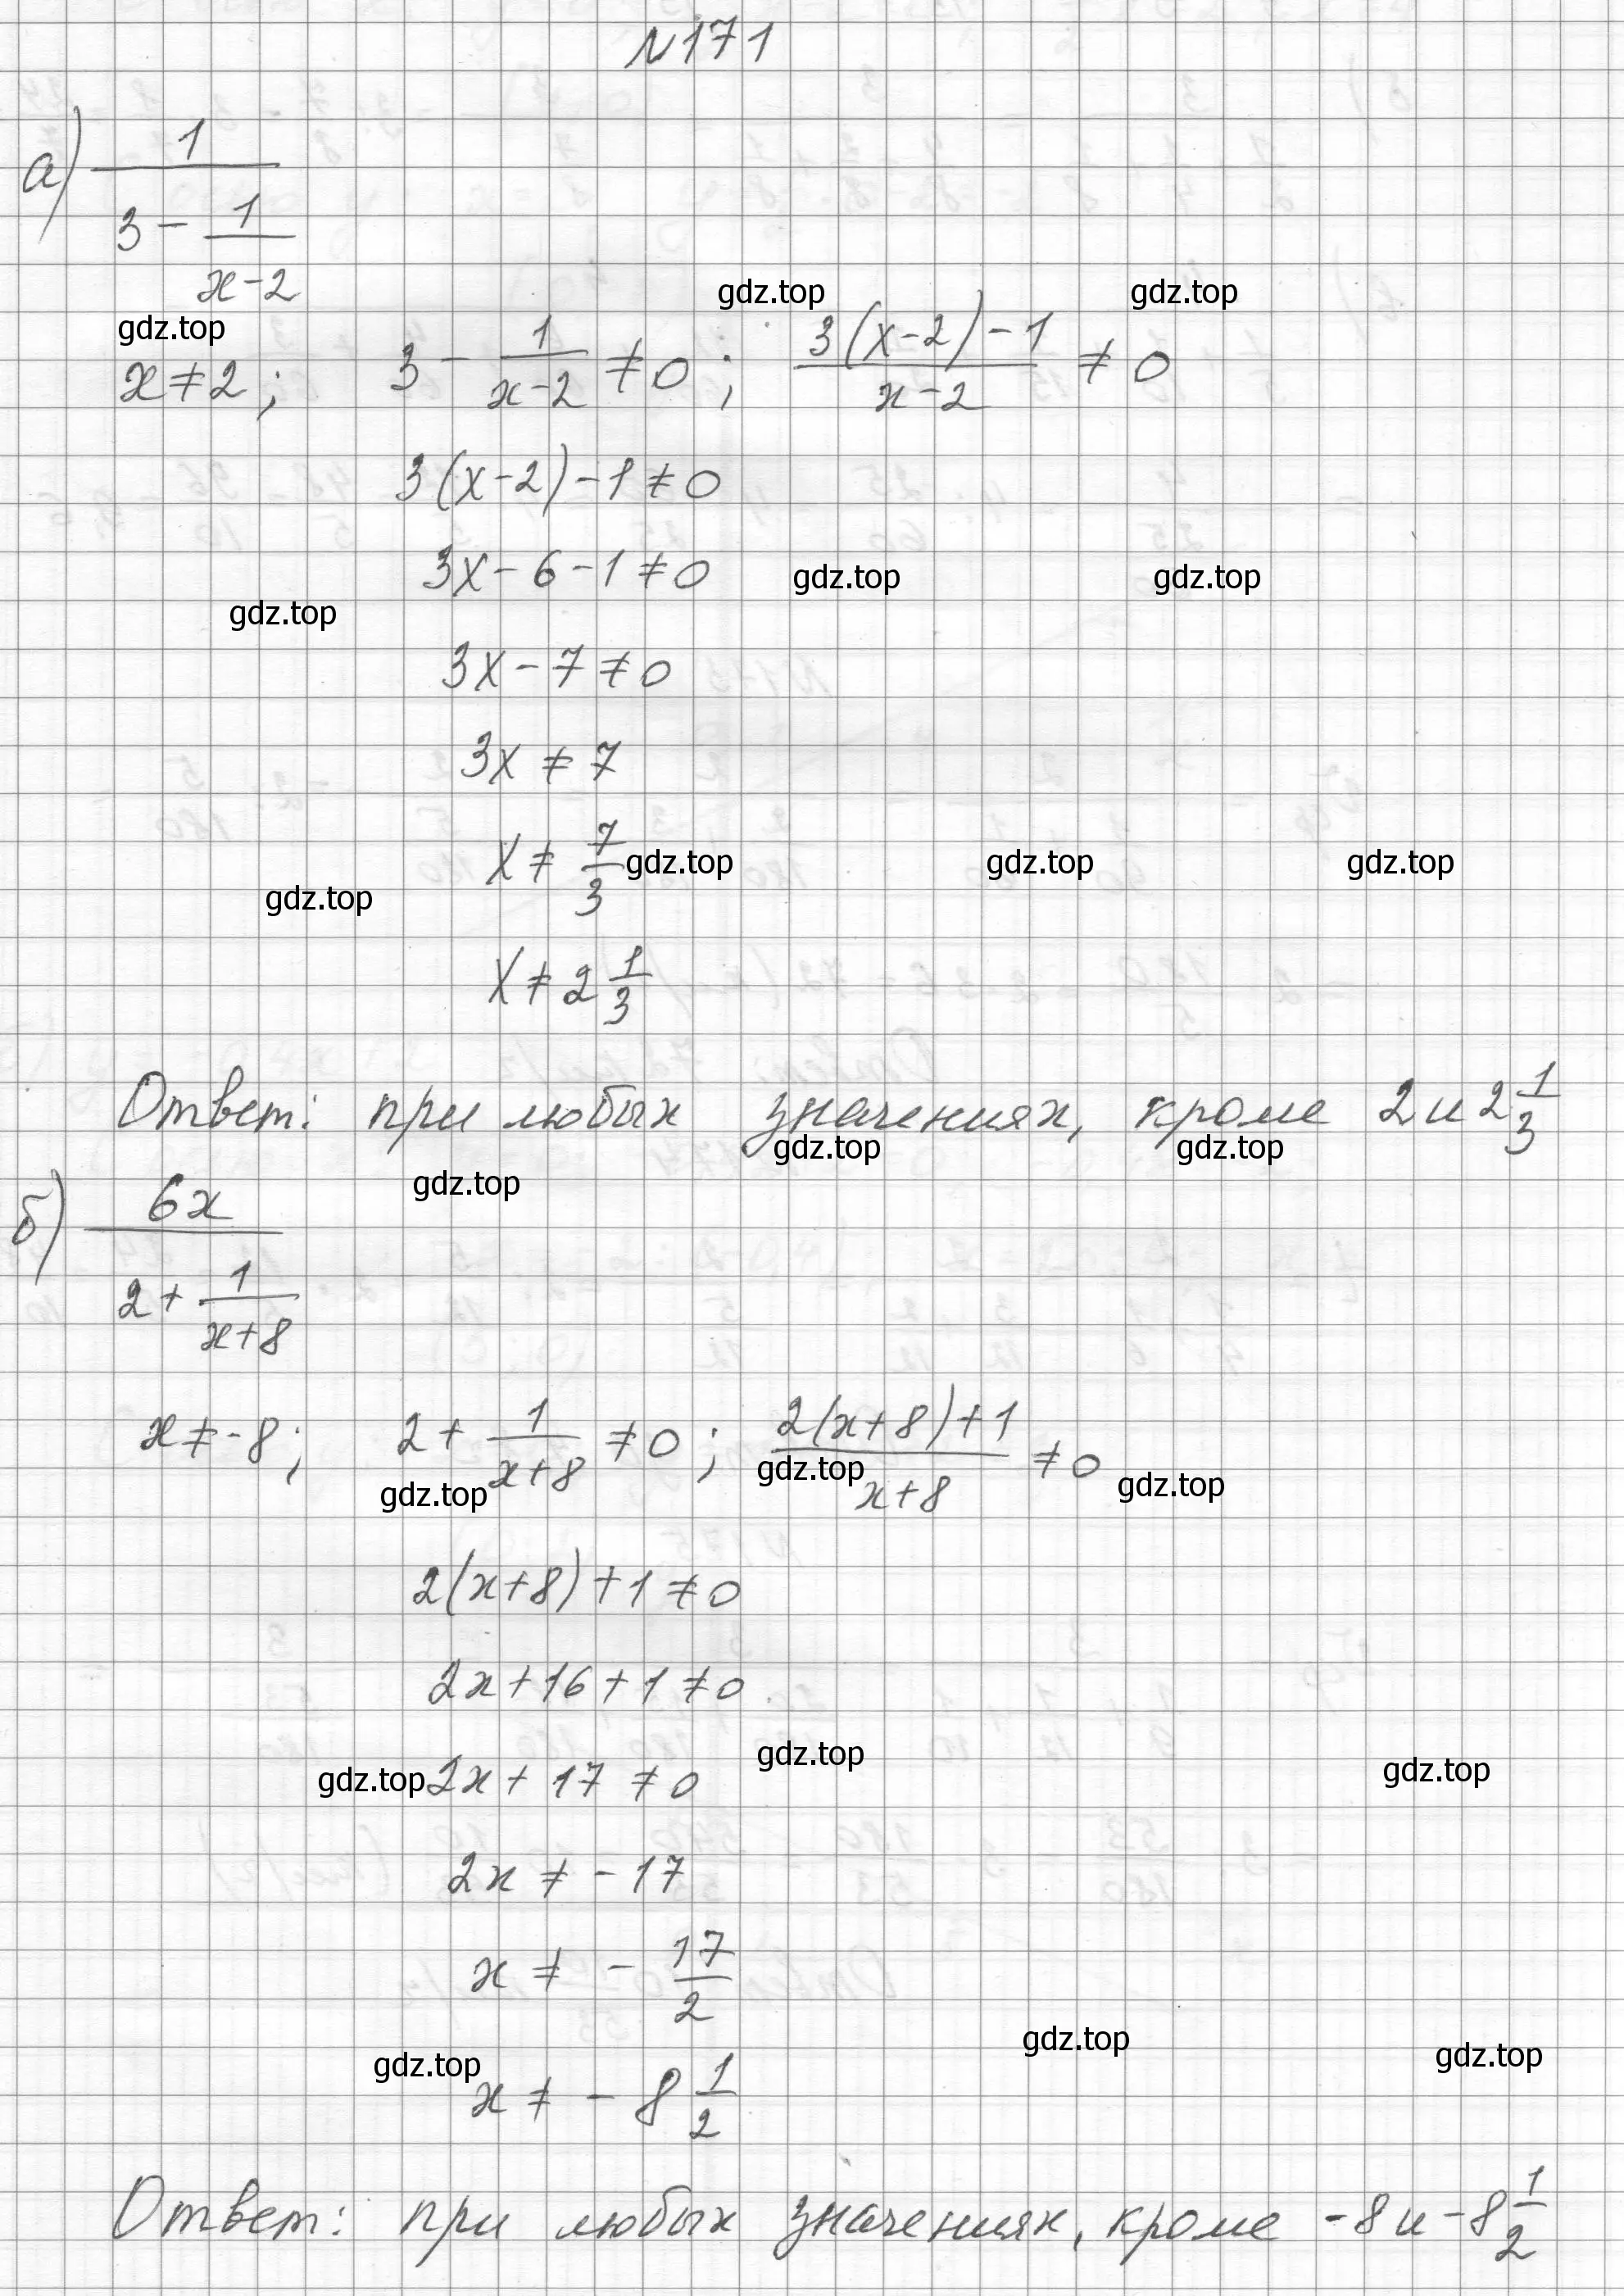 №171
а) 1/(3 - 1/(x-2))
gdz.top gdz.top gdz.top
x≠2; 3 - 1/(x-2) ≠0; (3(x-2)-1)/(x-2) ≠ 0
3(x-2)-1≠0
3x-6-1≠0 gdz.top gdz.top
gdz.top
3x-7≠0
3x≠7
x≠7/3 gdz.top gdz.top gdz.top
gdz.top
x≠2 1/3
Ответ: при любых значениях, кроме 2 и 2 1/3
gdz.top gdz.top
gdz.top
б) 6x/(2+ 1/(x+8))
x≠-8; 2+ 1/(x+8) ≠0; (2(x+8)+1)/(x+8) ≠0
gdz.top gdz.top gdz.top
2(x+8)+1≠0
2x+16+1≠0
gdz.top gdz.top
gdz.top 2x+17≠0
2x≠-17
x≠ - 17/2
gdz.top gdz.top
gdz.top
x≠ - 8 1/2
Ответ: при любых значениях, кроме -8 и -8 1/2